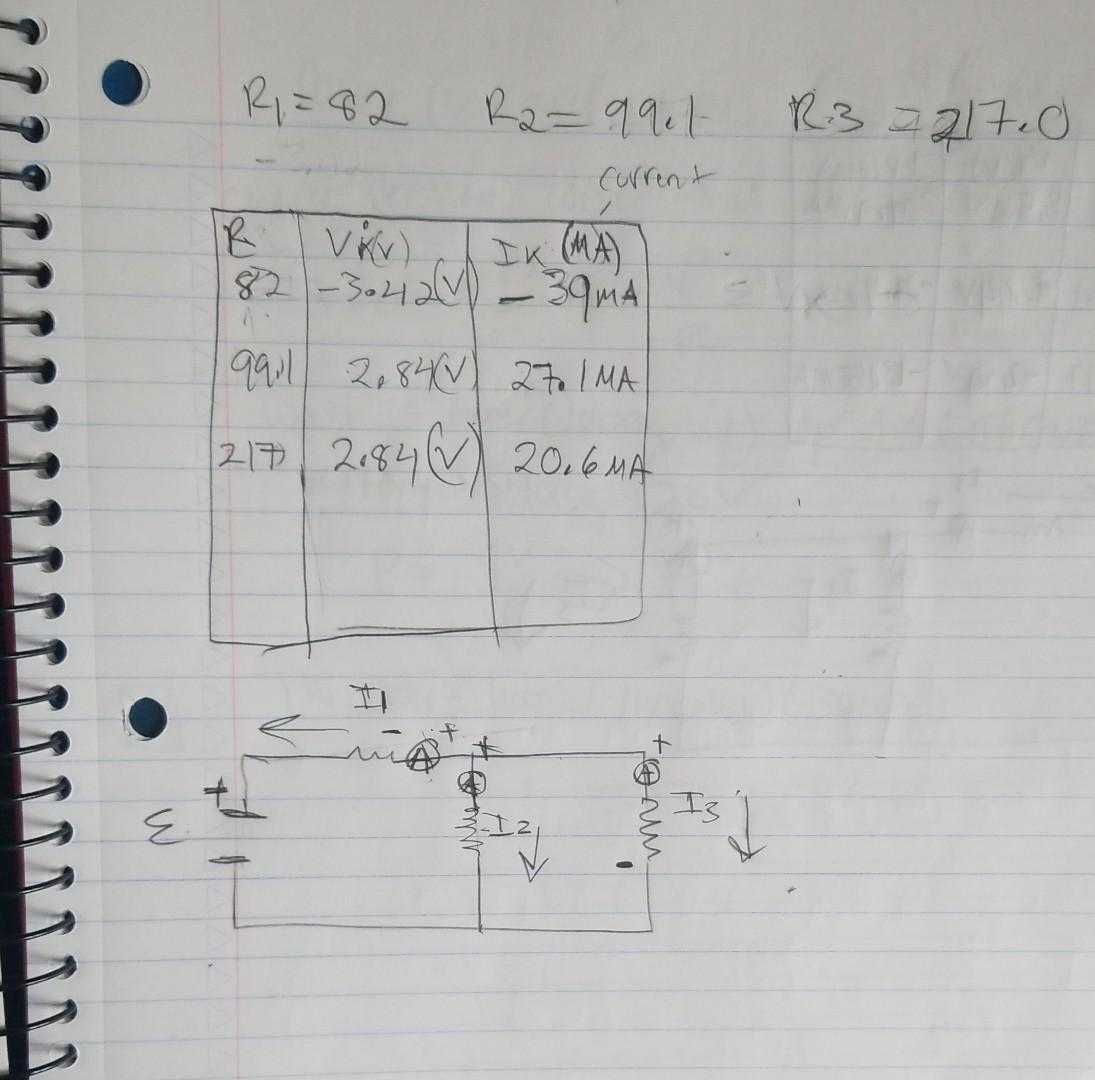 R1 = 82 R2 = 99.1 R3 = 217.0
current
R VK(V) IK (MA)
82 -3.42(V) - 39MA
99.1 2.84(V) 27.1MA
217 2.84(V) 20.6MA
I1
- + + +
A
+ A A
ε I2 I3
- -